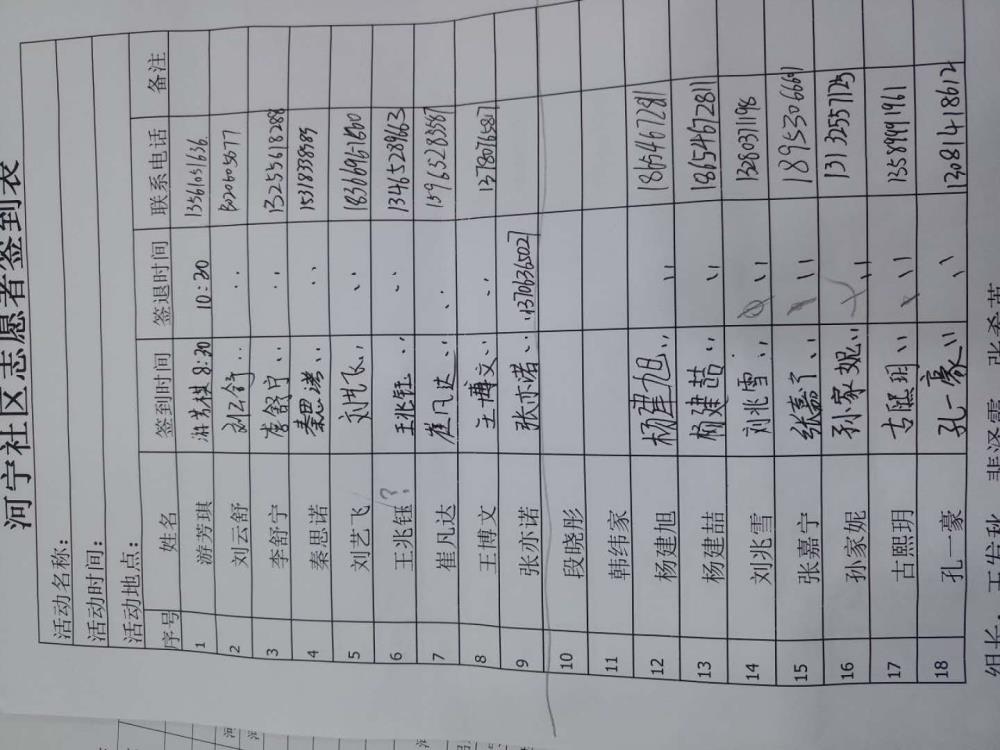 河宁社区志愿者签到表
活动名称：
活动时间：
活动地点：
序号 姓名 签到时间 签退时间 联系电话 备注
1 游芳琪 游芳琪 8:30 10:20 13561051636
2 刘云舒 刘云舒 〃 〃
3 李舒宁 李舒宁 〃 〃 13255618288
4 秦思诺 秦思诺 〃 〃 15318338989
5 刘艺飞 刘艺飞 〃 〃
6 王兆钰 ? 王兆钰 〃 〃 13465289663
7 崔凡达 崔凡达 〃 〃 15963283587
8 王博文 王博文 〃 〃 13780765817
9 张亦诺 张亦诺 〃 〃 13706365027
10 段晓彤
11 韩纬家
12 杨建旭 杨建旭 〃 〃 18654672811
13 杨建喆 杨建喆 〃 〃 18654672811
14 刘兆雪 刘兆雪 〃 〃 13280371198
15 张嘉宁 张嘉宁 〃 〃 18953066691
16 孙家妮 孙家妮 〃 〃 13132557125
17 古熙玥 古熙玥 〃 〃 13589991961
18 孔一豪 孔一豪 〃 〃 13081418612